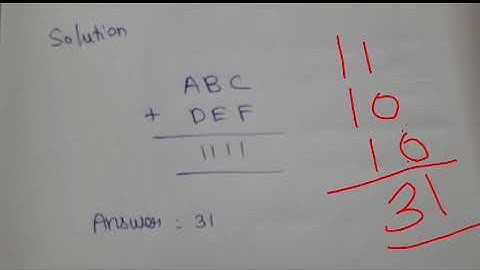 Solution
ABC
+ DEF
1111
Answer : 31
11
10
10
31